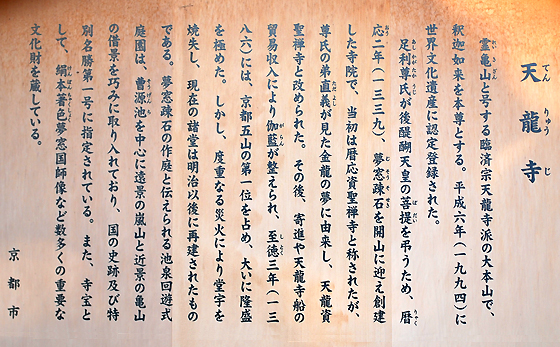 天龍寺
霊亀山と号する臨済宗天龍寺派の大本山で、
釈迦如来を本尊とする。平成六年(一九九四)に
世界文化遺産に認定登録された。
足利尊氏が後醍醐天皇の菩提を弔うため、暦
応二年(一三三九)、夢窓疎石を開山に迎え創建
した寺院で、当初は暦応資聖禅寺と称されたが、
尊氏の弟直義が見た金龍の夢に由来し、天龍資
聖禅寺と改められた。その後、寄進や天龍寺船の
貿易収入により伽藍が整えられ、至徳三年(一三
八六)には、京都五山の第一位を占め、大いに隆盛
を極めた。しかし、度重なる災火により堂宇を
焼失し、現在の諸堂は明治以後に再建されたもの
である。夢窓疎石の作庭と伝えられる池泉回遊式
庭園は、曹源池を中心に遠景の嵐山と近景の亀山
の借景を巧みに取り入れており、国の史跡及び特
別名勝第一号に指定されている。また、寺宝と
して、絹本著色夢窓国師像など数多くの重要な
文化財を蔵している。
京都市